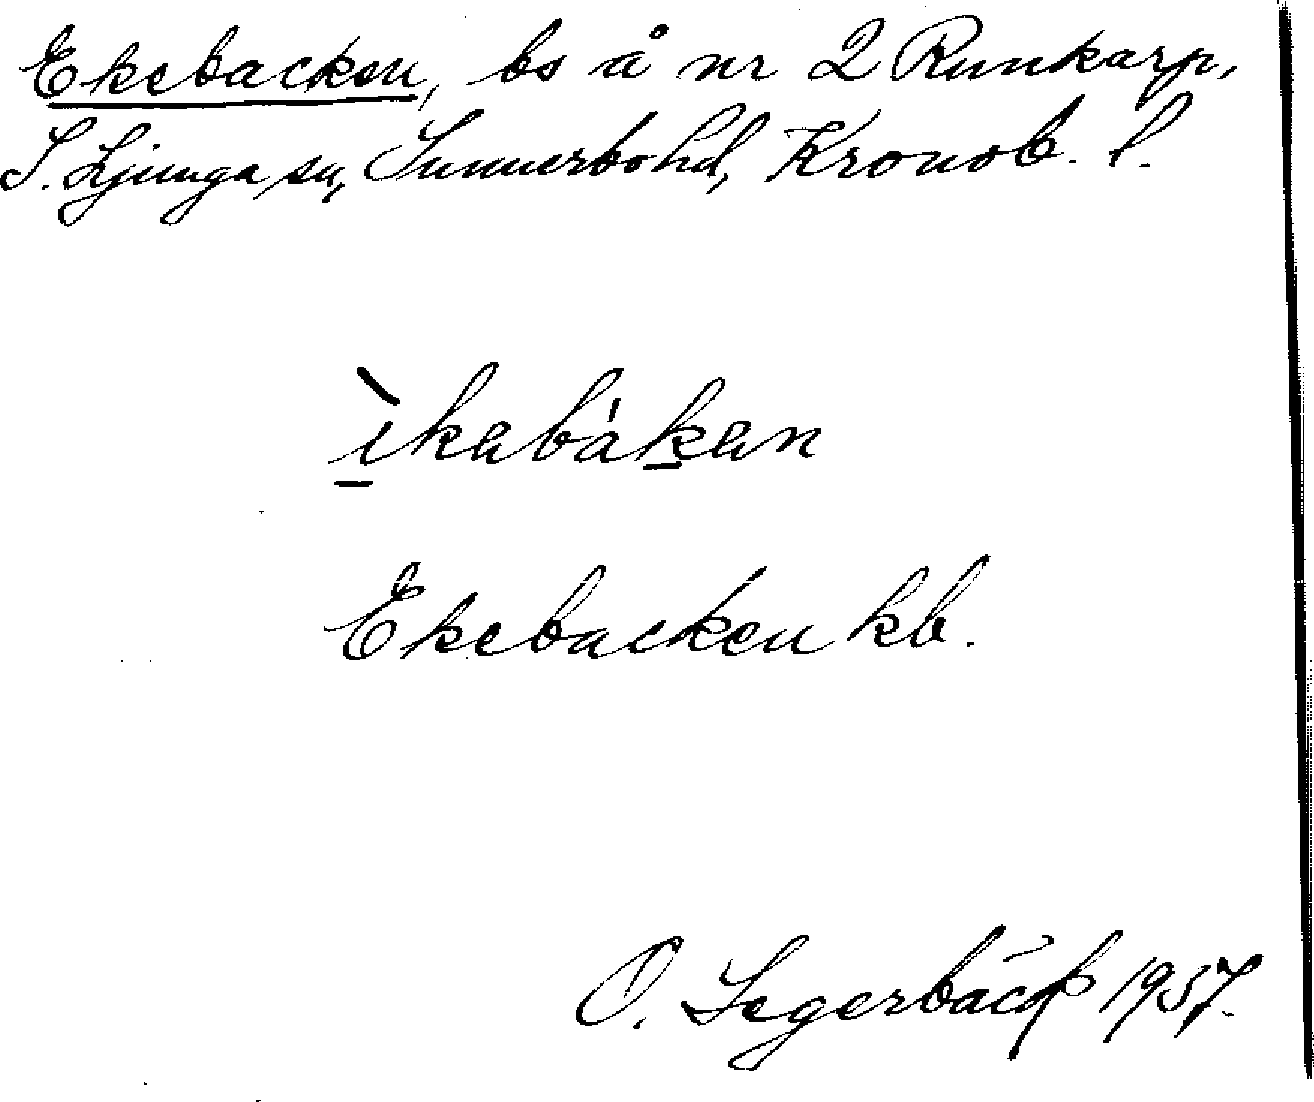 Ekebacken, bs å nr 2 Runkarp,
S. Ljunga sn, Sunnerbo hd, Kronob. l.
ìkabákan
Ekebacken kb.
O. Segerbäck 1957.